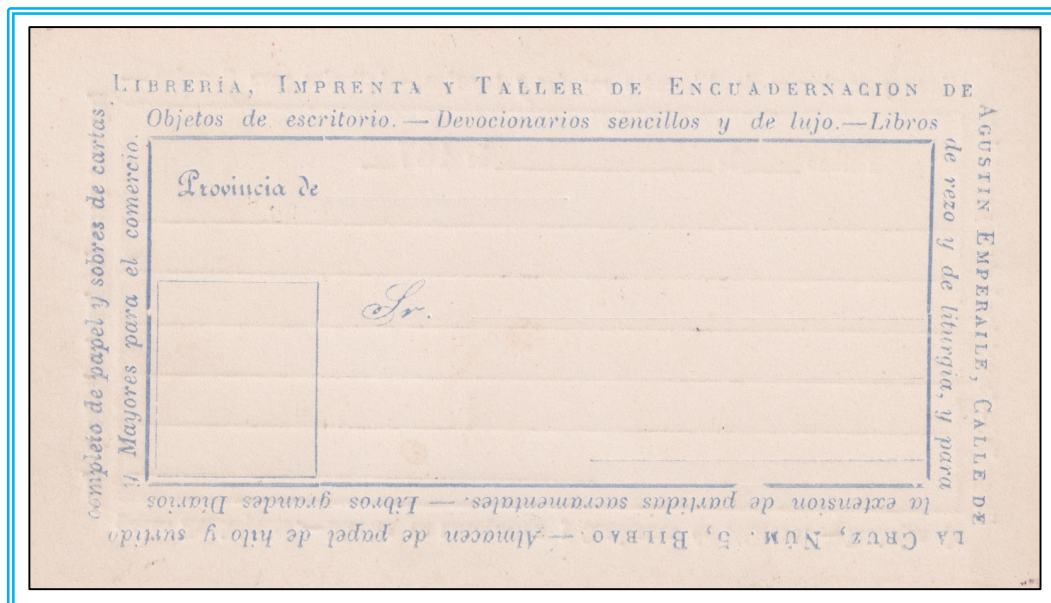 LIBRERÍA, IMPRENTA Y TALLER DE ENCUADERNACION DE
AGUSTIN EMPERAILE, CALLE DE
LA CRUZ, NÚM. 5, BILBAO.—Almacen de papel de hilo y surtido
completo de papel y sobres de cartas
Objetos de escritorio.—Devocionarios sencillos y de lujo.—Libros
de rezo y de liturgia, y para
la extension de partidas sacramentales.—Libros grandes Diarios
y Mayores para el comercio.
Provincia de
Sr.